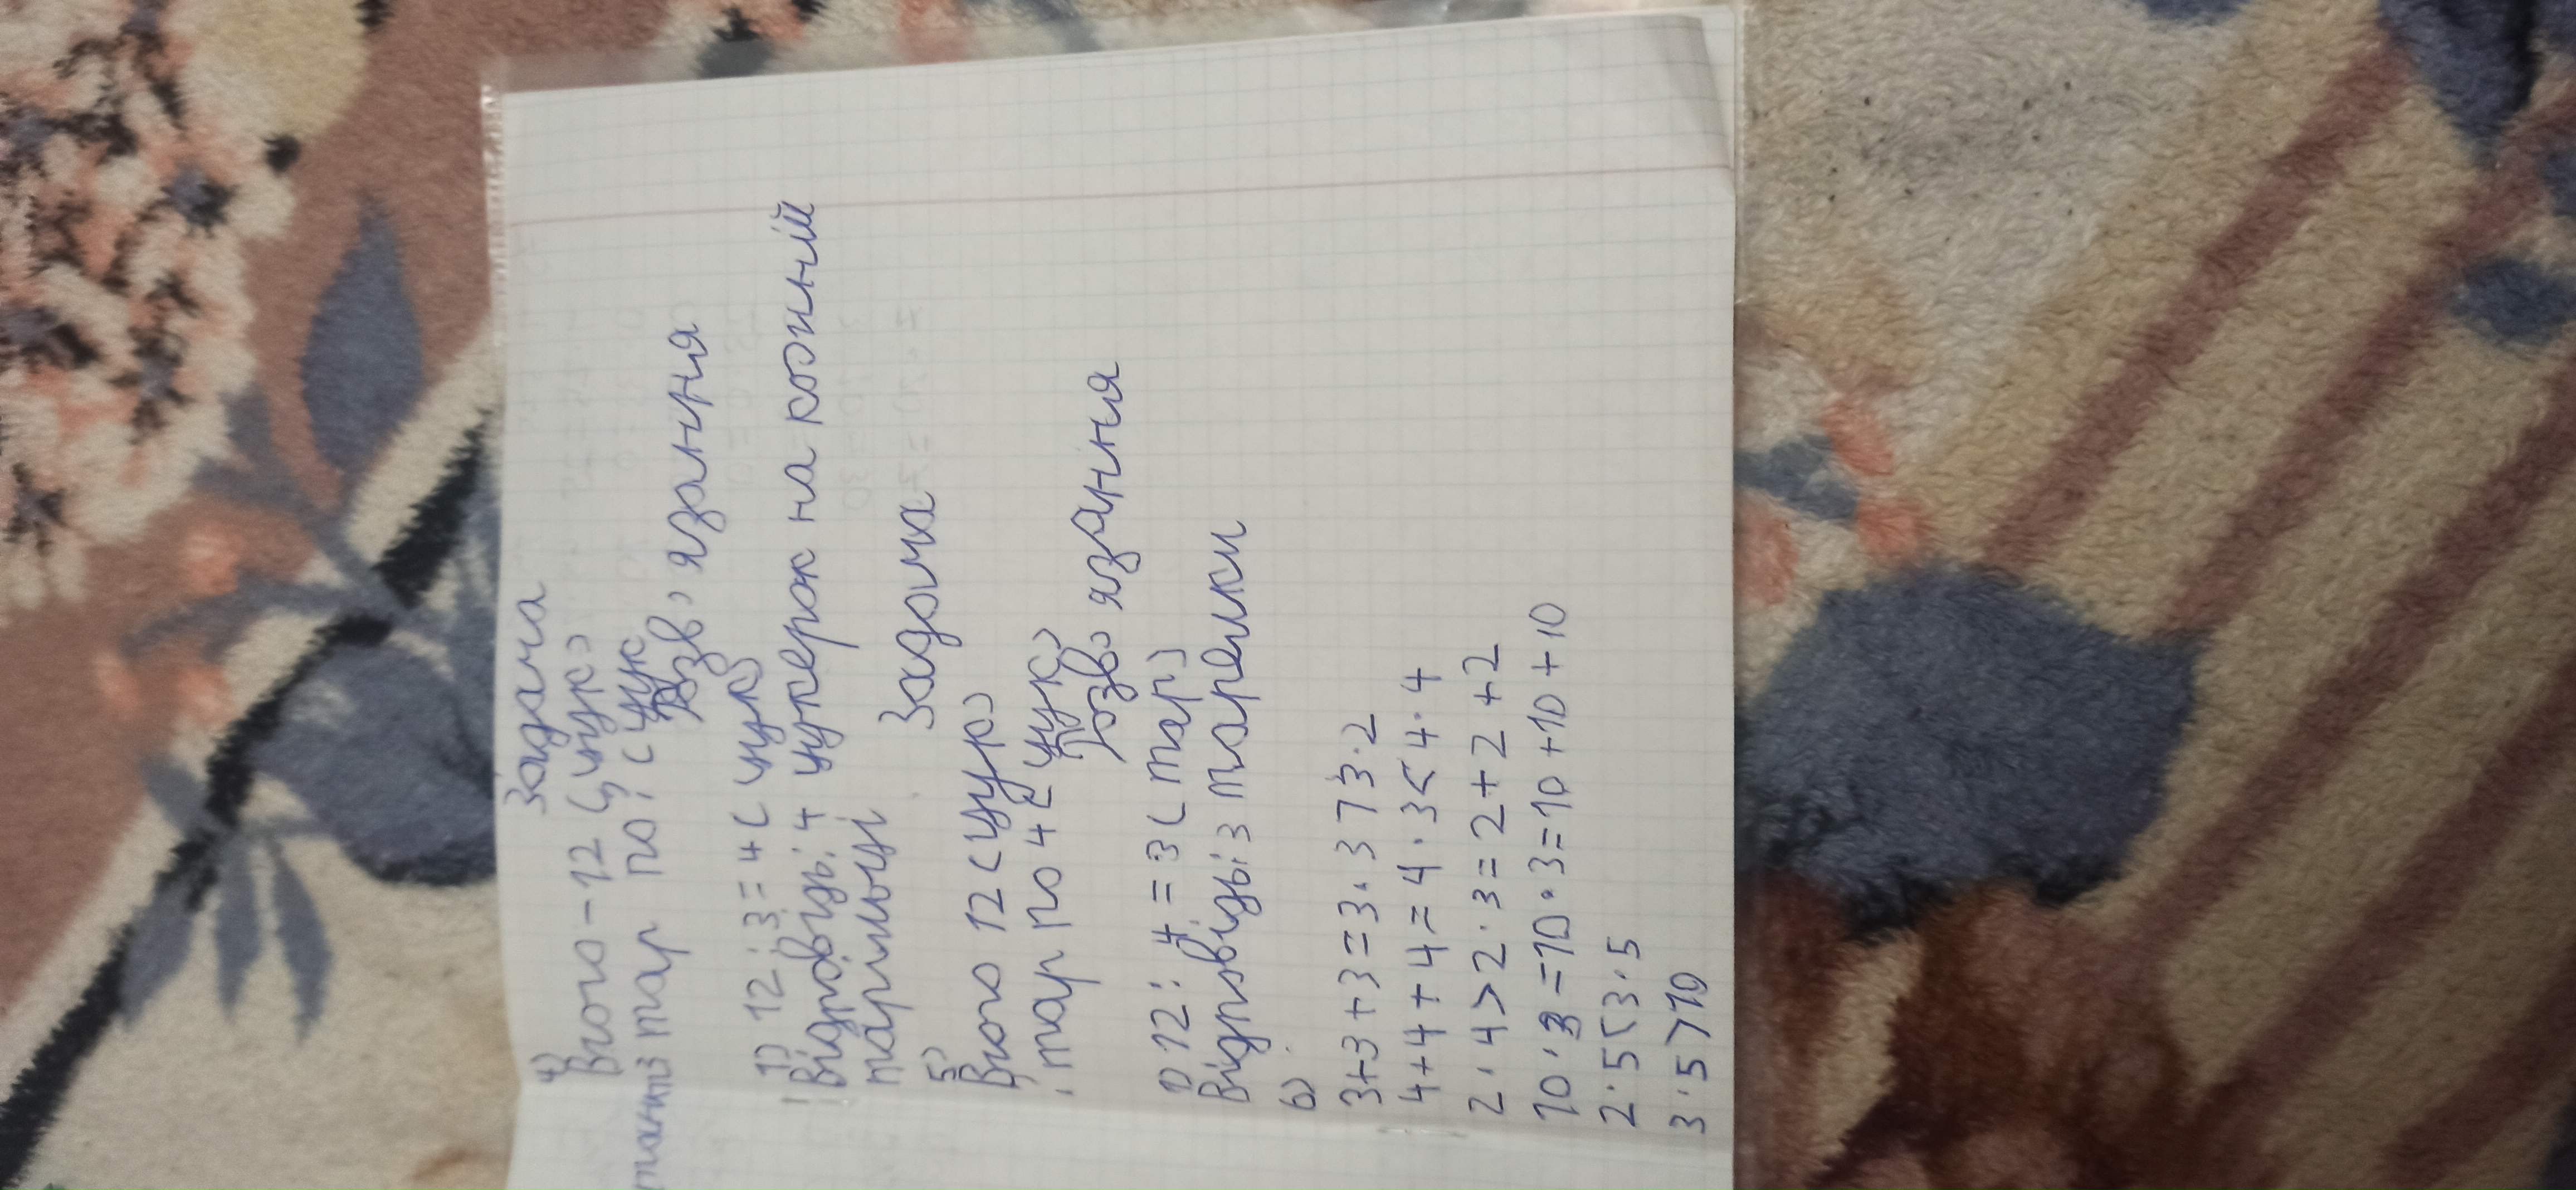 Задача
4)
Всього-12 (цук)
3 тар по ? (цук
Розв'язання
1) 12:3=4 (цук)
Відповідь: 4 цукерок на кожній
тарілці
Задача
5)
Всього 12 (цук)
? тар по 4 (цук)
Розв'язання
1) 12:4=3 (тар)
Відповідь: 3 тарелки
6)
3+3+3=3·3 7 3·2
4+4+4=4·3<4·4
2·4>2·3=2+2+2
10·3=10·3=10+10+10
2·5<3·5
3·5>10